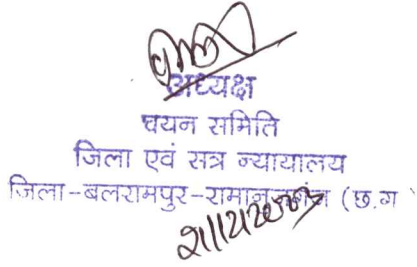 अध्यक्ष
चयन समिति
जिला एवं सत्र न्यायालय
जिला-बलरामपुर-रामानुजगंज (छ.ग